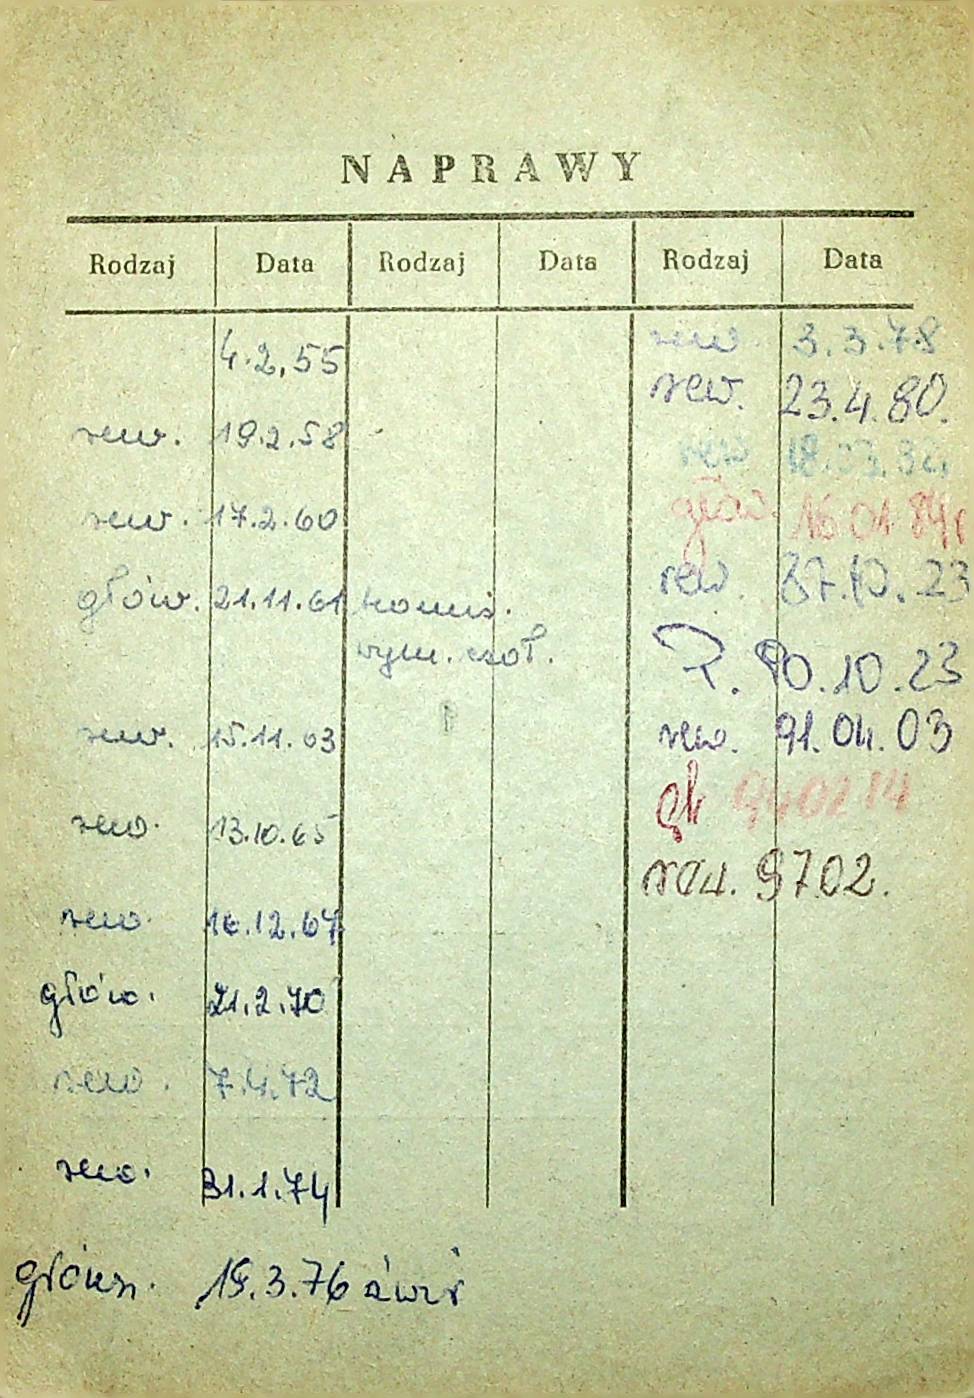 NAPRAWY
Rodzaj Data Rodzaj Data Rodzaj Data
4.2.55
rew. 19.2.58
rew. 17.2.60
głów. 21.11.61
wym.
rew. 15.11.63
rew. 13.10.65
rew. 16.12.67
głów. 21.2.70
rew. 7.4.72
rew. 31.1.74
główn. 19.3.76
rew. 3.3.78
rew. 23.4.80.
rew
głów. 16 01 84r
rew. 87.10.23
P. 90.10.23
rew. 91.04.03
gł 940214
rew. 9702.